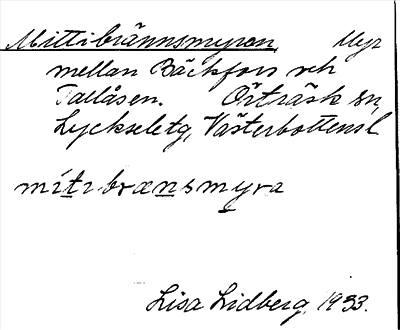 Mittibrännsmyran Myr
mellan Bäckfors och
Tallåsen. Örträsk sn,
Lyckseletg, Västerbottensl
mitibrænsmyra
Lisa Lidberg, 1933.